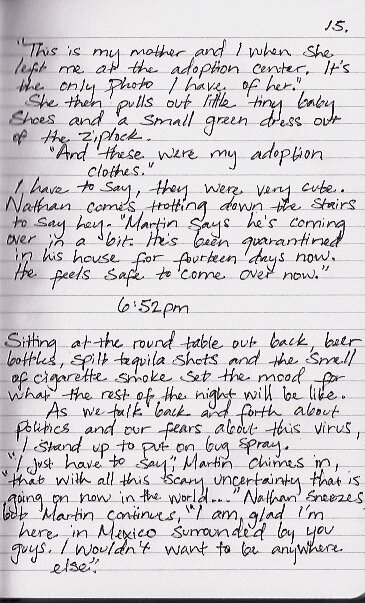 15.
"This is my mother and I when she
left me at the adoption center. It's
the only photo I have of her."
She then pulls out little tiny baby
shoes and a small green dress out
of the ziplock.
"And these were my adoption
clothes."
I have to say, they were very cute.
Nathan comes trotting down the stairs
to say hey. "Martin says he's coming
over in a bit. He's been quarantined
in his house for fourteen days now.
He feels safe to come over now."
6:52pm
Sitting at the round table out back, beer
bottles, spilt tequila shots and the smell
of cigarette smoke set the mood for
what the rest of the night will be like.
As we talk back and forth about
politics and our fears about this virus,
I stand up to put on bug spray.
"I just have to say," Martin chimes in,
"that with all this scary uncertainty that is
going on now in the world..." Nathan sneezes
but Martin continues, "I am glad I'm
here in Mexico surrounded by you
guys. I wouldn't want to be anywhere
else."